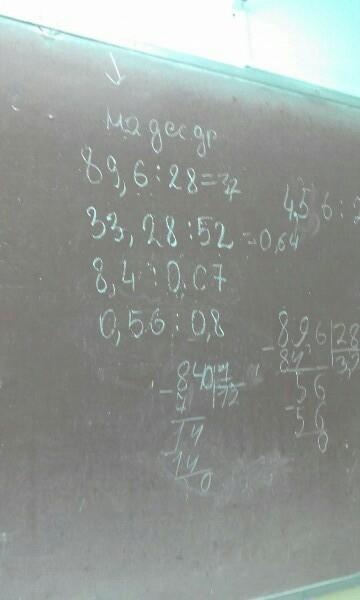 на дес др
89,6:28=3,2
33,28:52=0,64
8,4:0,07
0,56:0,8
4,56:
89,6 28
84 3,2
56
56
0
840 7
7 12
14
14
0